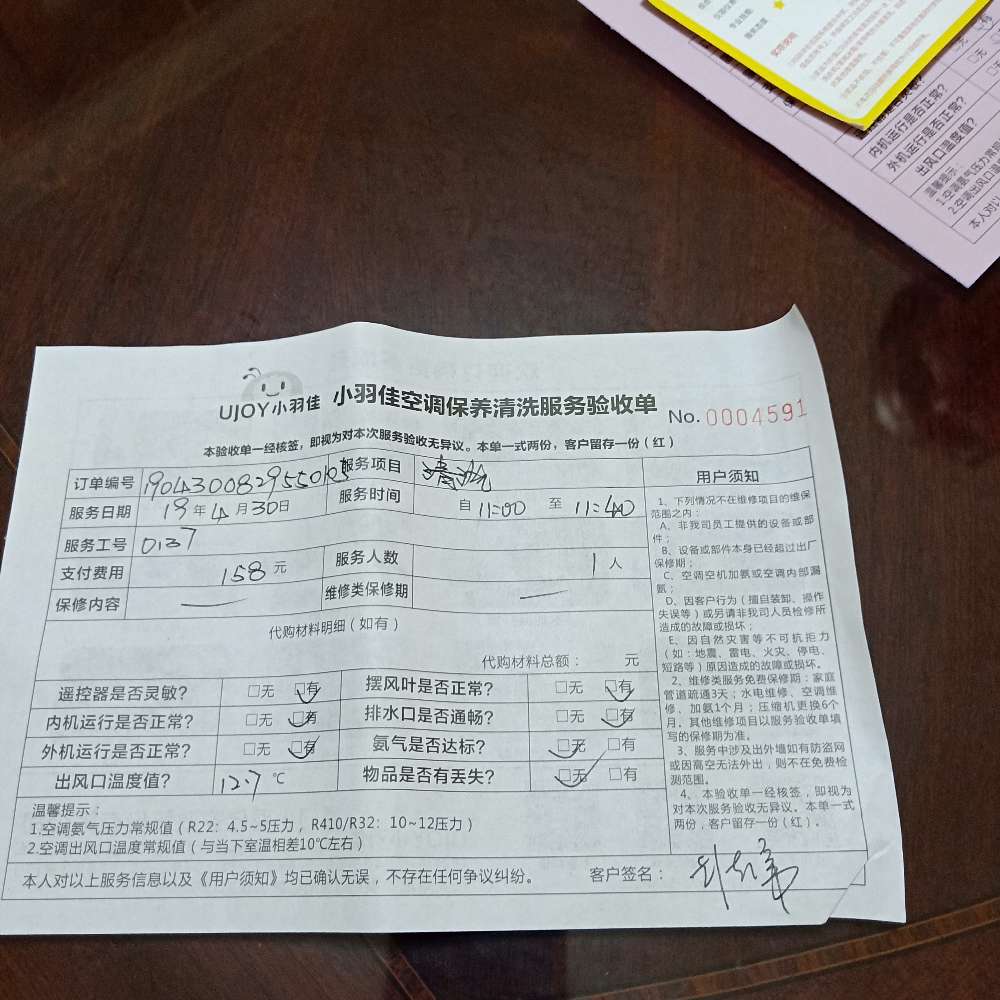 奖项说明
内机运行是否正常?
外机运行是否正常?
出风口温度值?
温馨提示:
UJOY小羽佳 小羽佳空调保养清洗服务验收单 No.0004591
本验收单一经核签，即视为对本次服务验收无异议。本单一式两份，客户留存一份（红）
订单编号 1904300829550105 服务项目 清洗
服务日期 19年4月30日 服务时间 自 11:00 至 11:40
服务工号 0137
支付费用 158元 服务人数 1人
保修内容 — 维修类保修期 —
代购材料明细（如有）
代购材料总额： 元
遥控器是否灵敏? □无 □有 摆风叶是否正常? □无 □有
内机运行是否正常? □无 □有 排水口是否通畅? □无 □有
外机运行是否正常? □无 □有 氨气是否达标? □无 □有
出风口温度值? 12.7 ℃ 物品是否有丢失? □无 □有
温馨提示：
1.空调氨气压力常规值（R22：4.5~5压力，R410/R32：10~12压力）
2.空调出风口温度常规值（与当下室温相差10℃左右）
本人对以上服务信息以及《用户须知》均已确认无误，不存在任何争议纠纷。 客户签名：
用户须知
1、下列情况不在维修项目的维保
范围之内：
A、非我司员工提供的设备或部
件；
B、设备或部件本身已经超过出厂
保修期；
C、空调空机加氨或空调内部漏
氨；
D、因客户行为（擅自装卸、操作
失误等）或另请非我司人员检修所
造成的故障或损坏；
E、因自然灾害等不可抗拒力
（如：地震、雷电、火灾、停电、
短路等）原因造成的故障或损坏。
2、维修类服务免费保修期：家庭
管道疏通3天；水电维修、空调维
修、加氨1个月；压缩机更换6个
月。其他维修项目以服务验收单填
写的保修期为准。
3、服务中涉及出外墙如有防盗网
或因高空无法外出，则不在免费检
测范围。
4、本验收单一经核签，即视为
对本次服务验收无异议。本单一式
两份，客户留存一份（红）。